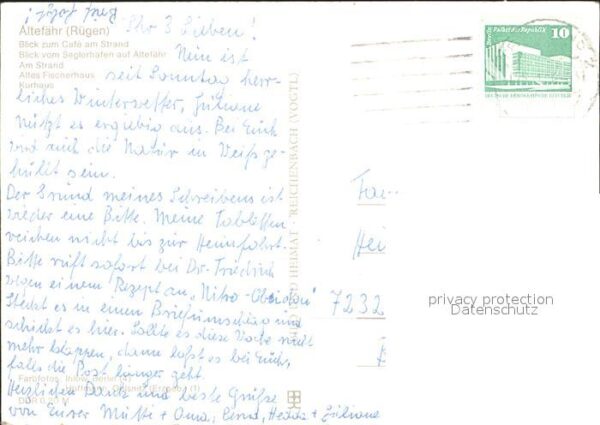 Altefähr (Rügen)
Blick zum Café am Strand
Blick vom Seglerhafen auf Altefähr
Am Strand
Altes Fischerhaus
Kurhaus
Ihr 3 Lieben!
Nun ist
seit Sonntag herr-
liches Winterwetter, Juliane
nützt es ergiebig aus. Bei Euch
wird auch die Natur in Weiß ge-
hüllt sein.
Der Grund meines Schreibens ist
wieder eine Bitte. Meine Tabletten
reichen nicht bis zur Heimfahrt.
Bitte ruft sofort bei Dr. Friedrich
wegen einem Rezept an, "Nitro-
Steckt es in einen Briefumschlag und
schickt es hier. Sollte es diese Woche nicht
mehr klappen, dann laßt es bei Euch,
falls die Post länger geht.
Herzlichen Dank und beste Grüße
von Eurer Mutti + Oma, + Juliane
BILD UND HEIMAT REICHENBACH (VOGTL)
Palast der Republik
10
DEUTSCHE DEMOKRATISCHE REPUBLIK
Fam
Hei
7232
privacy protection
Datenschutz